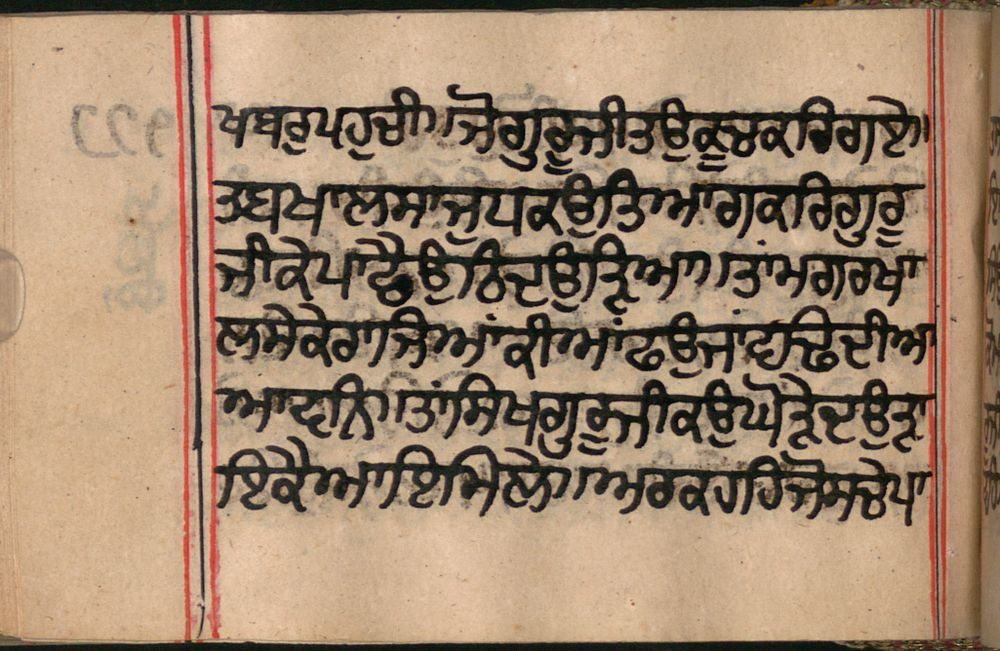 ਖਬਰੁਪਹੁਚੀ॥ਜੋਗੁਰੂਜੀਤਉਕੂਚਕਰਿਗਏ॥
ਤਬਖਾਲਸਾਜੁਧਕਉਤਿਆਗਕਰਿਗੁਰੂ
ਜੀਕੇਪਾਛੈਉਠਿਦਉੜਿਆ॥ਤਾਂਮਗਰਖਾ
ਲਸੇਕੇਰਾਜਿਆਂਕੀਆਂਫਉਜਾਂਚੜਿਦੀਆ
ਆਵਨਿ॥ਤਾਂਸਿਖਗੁਰੂਜੀਕਉਘੋੜੇਦਉੜਾ
ਇਕੈਆਇਮਿਲੇ॥ਅਰਕਹਹਿਜੋਸਚੇਪਾ